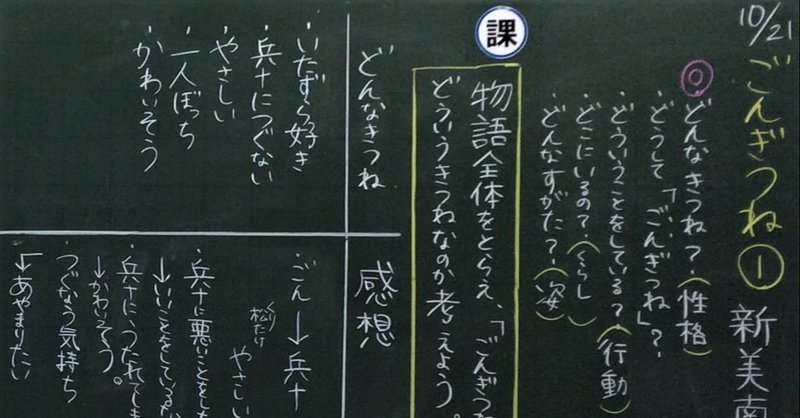 10/21
ごんぎつね① 新美南
◎どんなきつね?(性格)
・どうして「ごんぎつね」?
・どういうことをしている?(行動)
・どこにいるの?(くらし)
・どんなすがた?(姿)
課
物語全体をとらえ、「ごんぎつね
どういうきつねなのか考えよう。
どんなきつね
・いたずら好き
・兵十につぐない
・やさしい
・一人ぼっち
・かわいそう
感想
・ごん→兵十
くり
松たけ
やさしい
・兵十に悪いことを
→いいことをしている
・兵十に、うたれてしま
→かわいそう。
・つぐなう気持ち
→あやまりたい